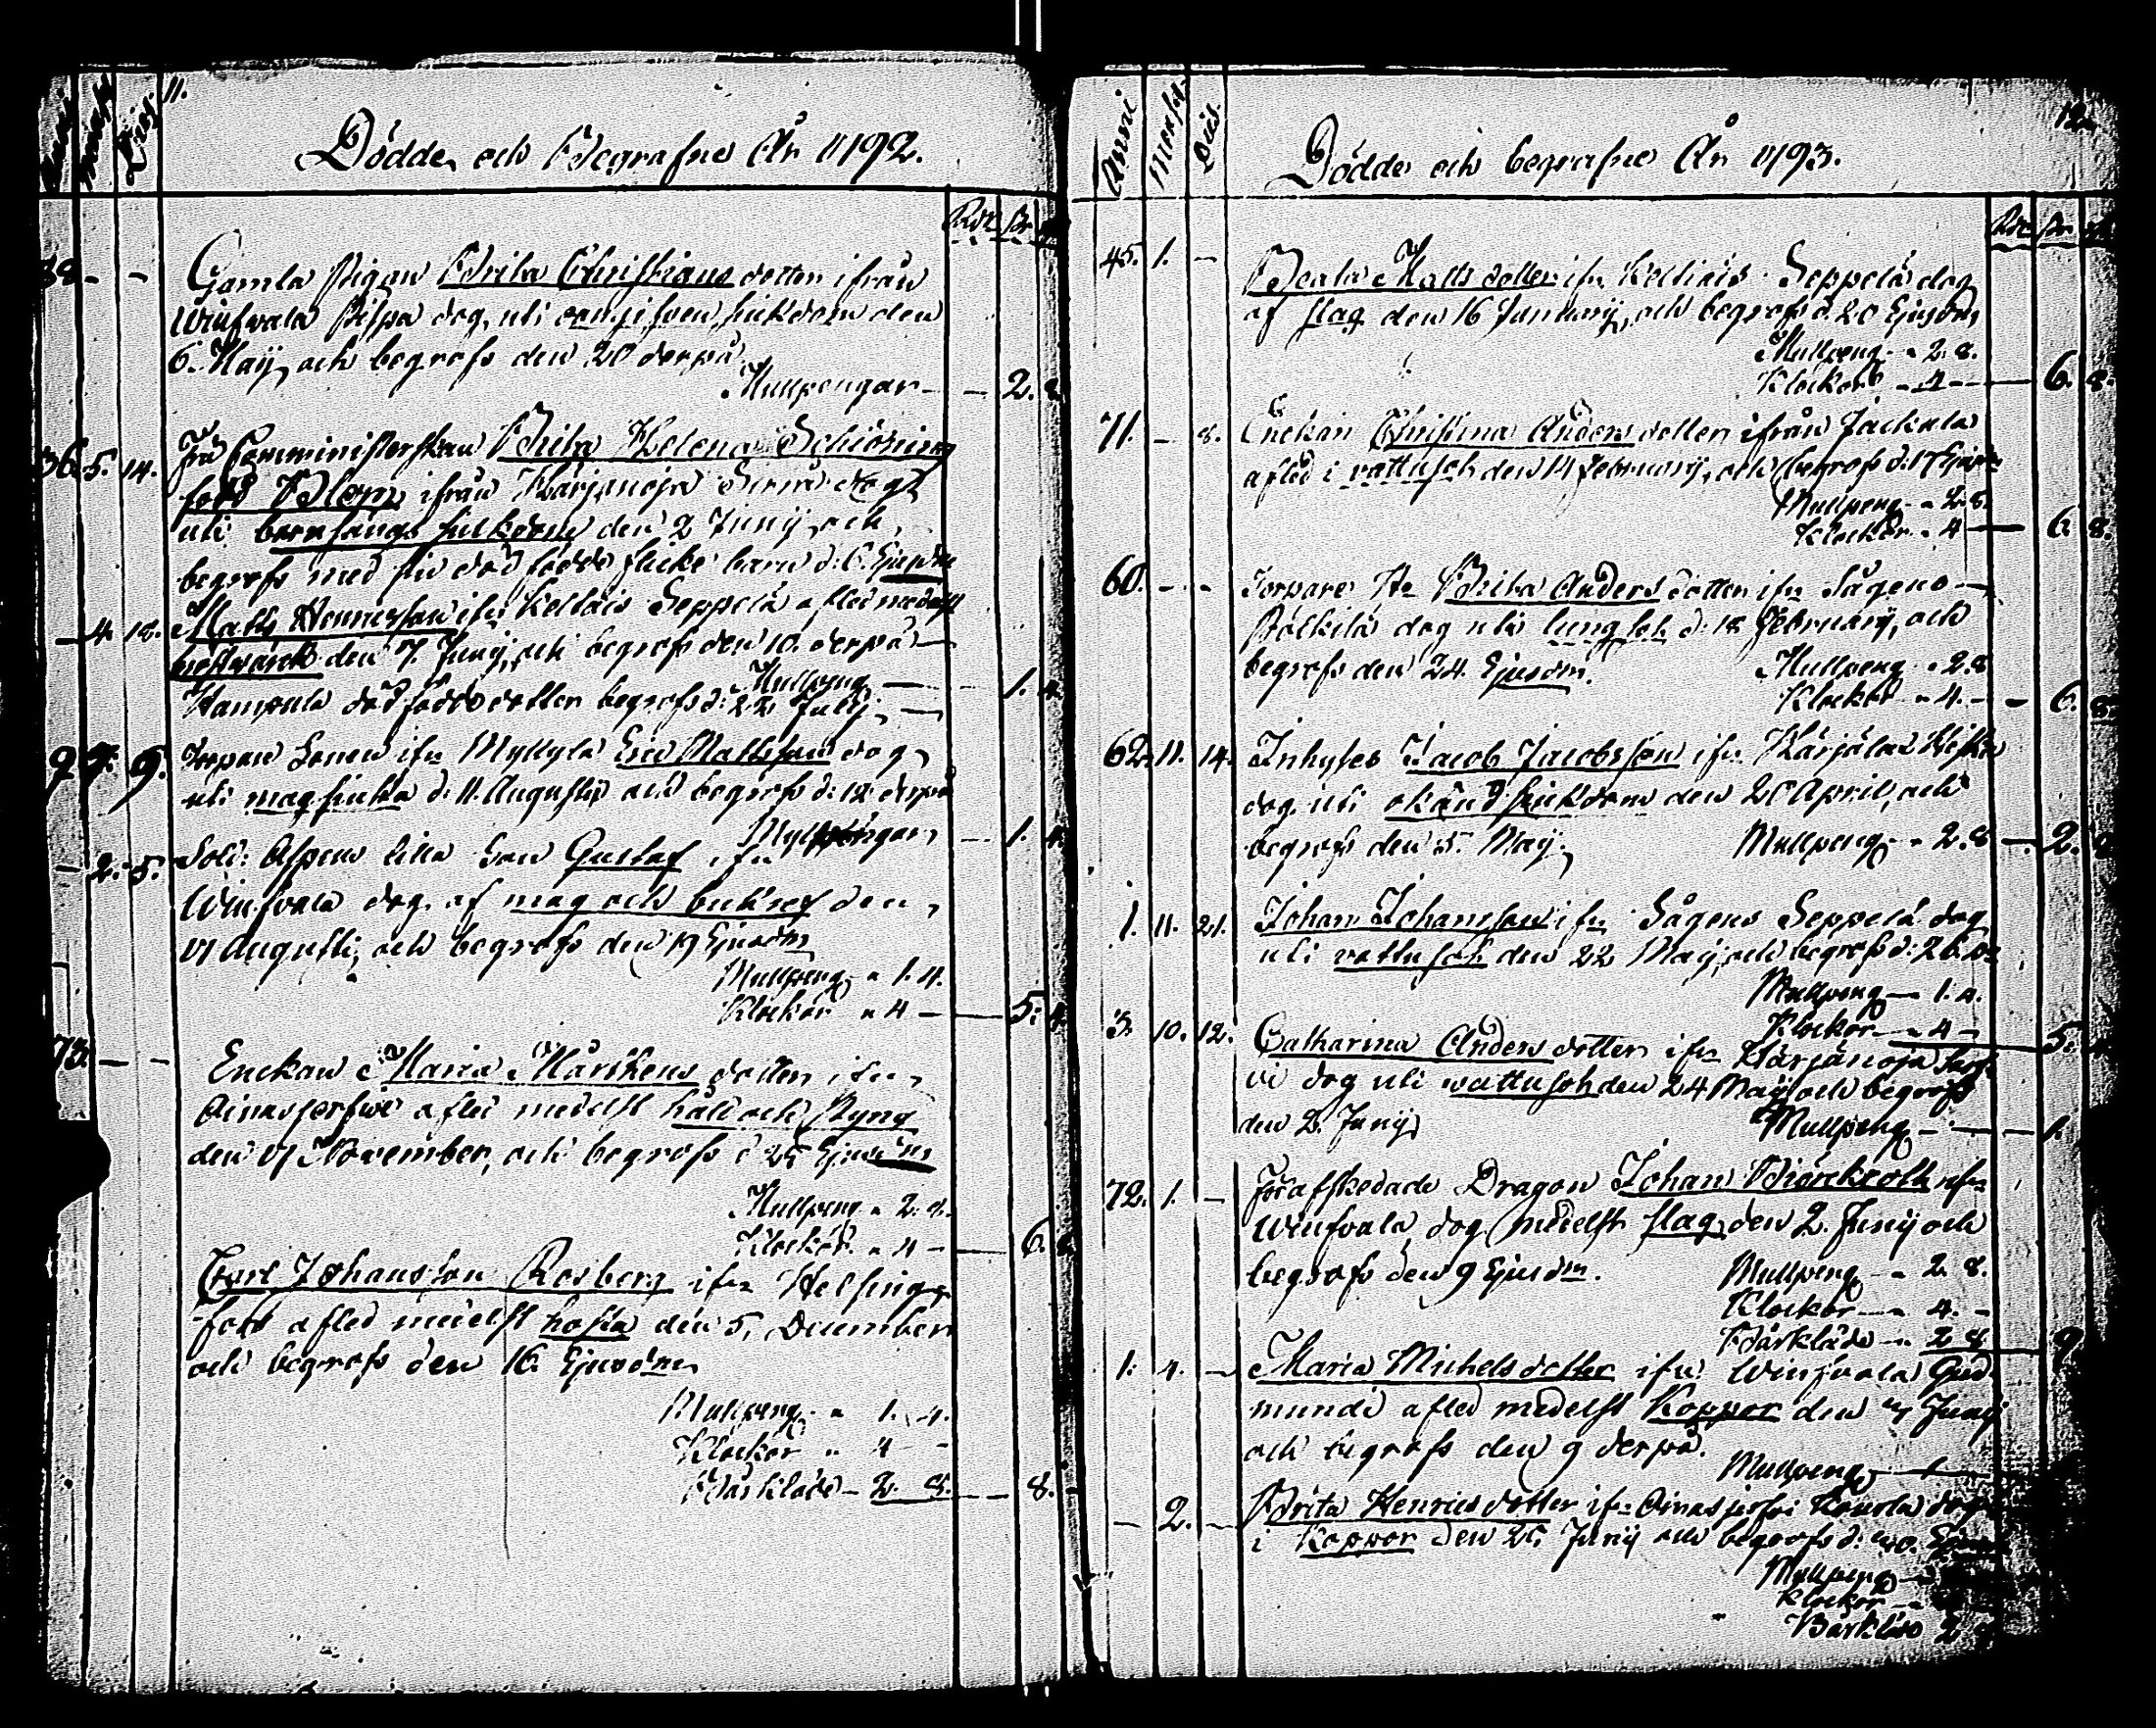 Anni
Mens.
Dies.
11.
Dödde och Begrafne År 1792.
Rdr ß.
38 - - Gamla Pigan Brita Christians dotter ifrån
Winfvala Pispa dog uti sjukdom den
6. Maij, och begrofs den 20 derpå.
Mullpengar - - 2. 8
36. 5. 14. Fru Comministerskan Brita Helena Schiöning
född ifrån Karjanoja dog
uti barnsängs sjukdom den 2 Junij, och
begrofs med sin död födde flicke barn d: 6. Ejusdm
- 4. 18. Matts Hennersson ifrn Kellais Seppelä afled medelst
den 7. Junij, och begrofs den 10. derpå
Mullpeng - - 1. 4
Hampula död födde dotter begrofs d: 22 Julij
9 7. 9. Torpare Sonen ifrn Myllylä Eric Mattsson dog
uti magsiuka d: 11. Augustij och begrofs d: 12 derpå
Mullpengar - 1. 4
- 2. 5. Sold: Aspens lilla Son Gustaf ifrn
Winfvala dog af mag och bukref den
17 Augusti, och begrofs den 19 Ejusdm
Mullpeng " 1. 4.
Klockor " 4 - - 5. 4
73. - - Enckan Maria Mårthens dotter ifrn
Oinasjerfwi afled medelst håll och styng
den 17 November, och begrofs d 25 Ejusdm
Mullpeng " 2. 8.
Klockor. " 4 - - 6. 8
Carl Johansson Rosberg ifrn Helsing-
fors afled medelst hosta den 5, December
och begrofs den 16. Ejusdm
Mullpeng " 1. 4.
Klockor " 4 -
Bårkläde - 2. 8. - - 8. -
Anni
Mens.
Dies.
12.
Dödde och begrafne År 1793.
Rdr ß.
45. 1. - Beata Matts dotter ifrn Kelliäis Seppelä dog
af slag den 16 Januarij, och begrofs d. 20 Ejusdm
Mullpeng - " 2. 8.
Klockor - 4 - 6. 8.
71. - 8. Enckan Christina Anders dotter ifrån Jackula
afled i vattusot den 14 Februarij, och begrofs d: 17 Ejusdm
Mullpeng - " 2. 8.
Klockor " 4 - 6. 8.
60. - - Torpare H:u Brita Anders dotter ifrn Sågeno
Pälkilä dog uti lungsot d: 18 Februarij, och
begrofs den 24. Ejusdm. Mullpeng - " 2. 8
Klockor " 4. - - 6. 8.
62. 11. 14. Inhyses Jacob Jacobsson ifrn Kärjälä
dog uti okänd siukdom den 20 April, och
begrofs den 5. Maij. Mullpeng - " 2. 8 - 2. 8
1. 11. 21. Johan Johansson ifrn Sågens Seppelä dog
uti vattusot den 22 Maij, och begrofs d: 26 D:o
Mullpeng - 1. 4.
Klockor - " 4 - 5.
3. 10. 12. Catharina Anders dotter ifrn Karjanoja
vi dog uti wattusot den 24 Maij och begrofs
den 2. Junij Mullpeng - - 1.
72. 1. - Förafskedade Dragon Johan Biörckroth ifrn
Winfvala dog medelst slag den 2. Junij och
begrofs den 9 Ejusdm. Mullpeng - " 2. 8.
Klockor - " 4. -
Bårkläde - 2 8 9.
1. 4. - Maria Michels dotter ifrn Winfvala Gud-
mundi afled medelst Koppor den 7 Junij
och begrofs den 9 derpå.
Mullpeng - 1
- 2. - Brita Henrics dotter ifrn Oinasjerfvi dog
i Koppor den 25 Junij och begrofs d: 30. Ejusdm
Mullpeng -
Klockor -
Bårkläde 2